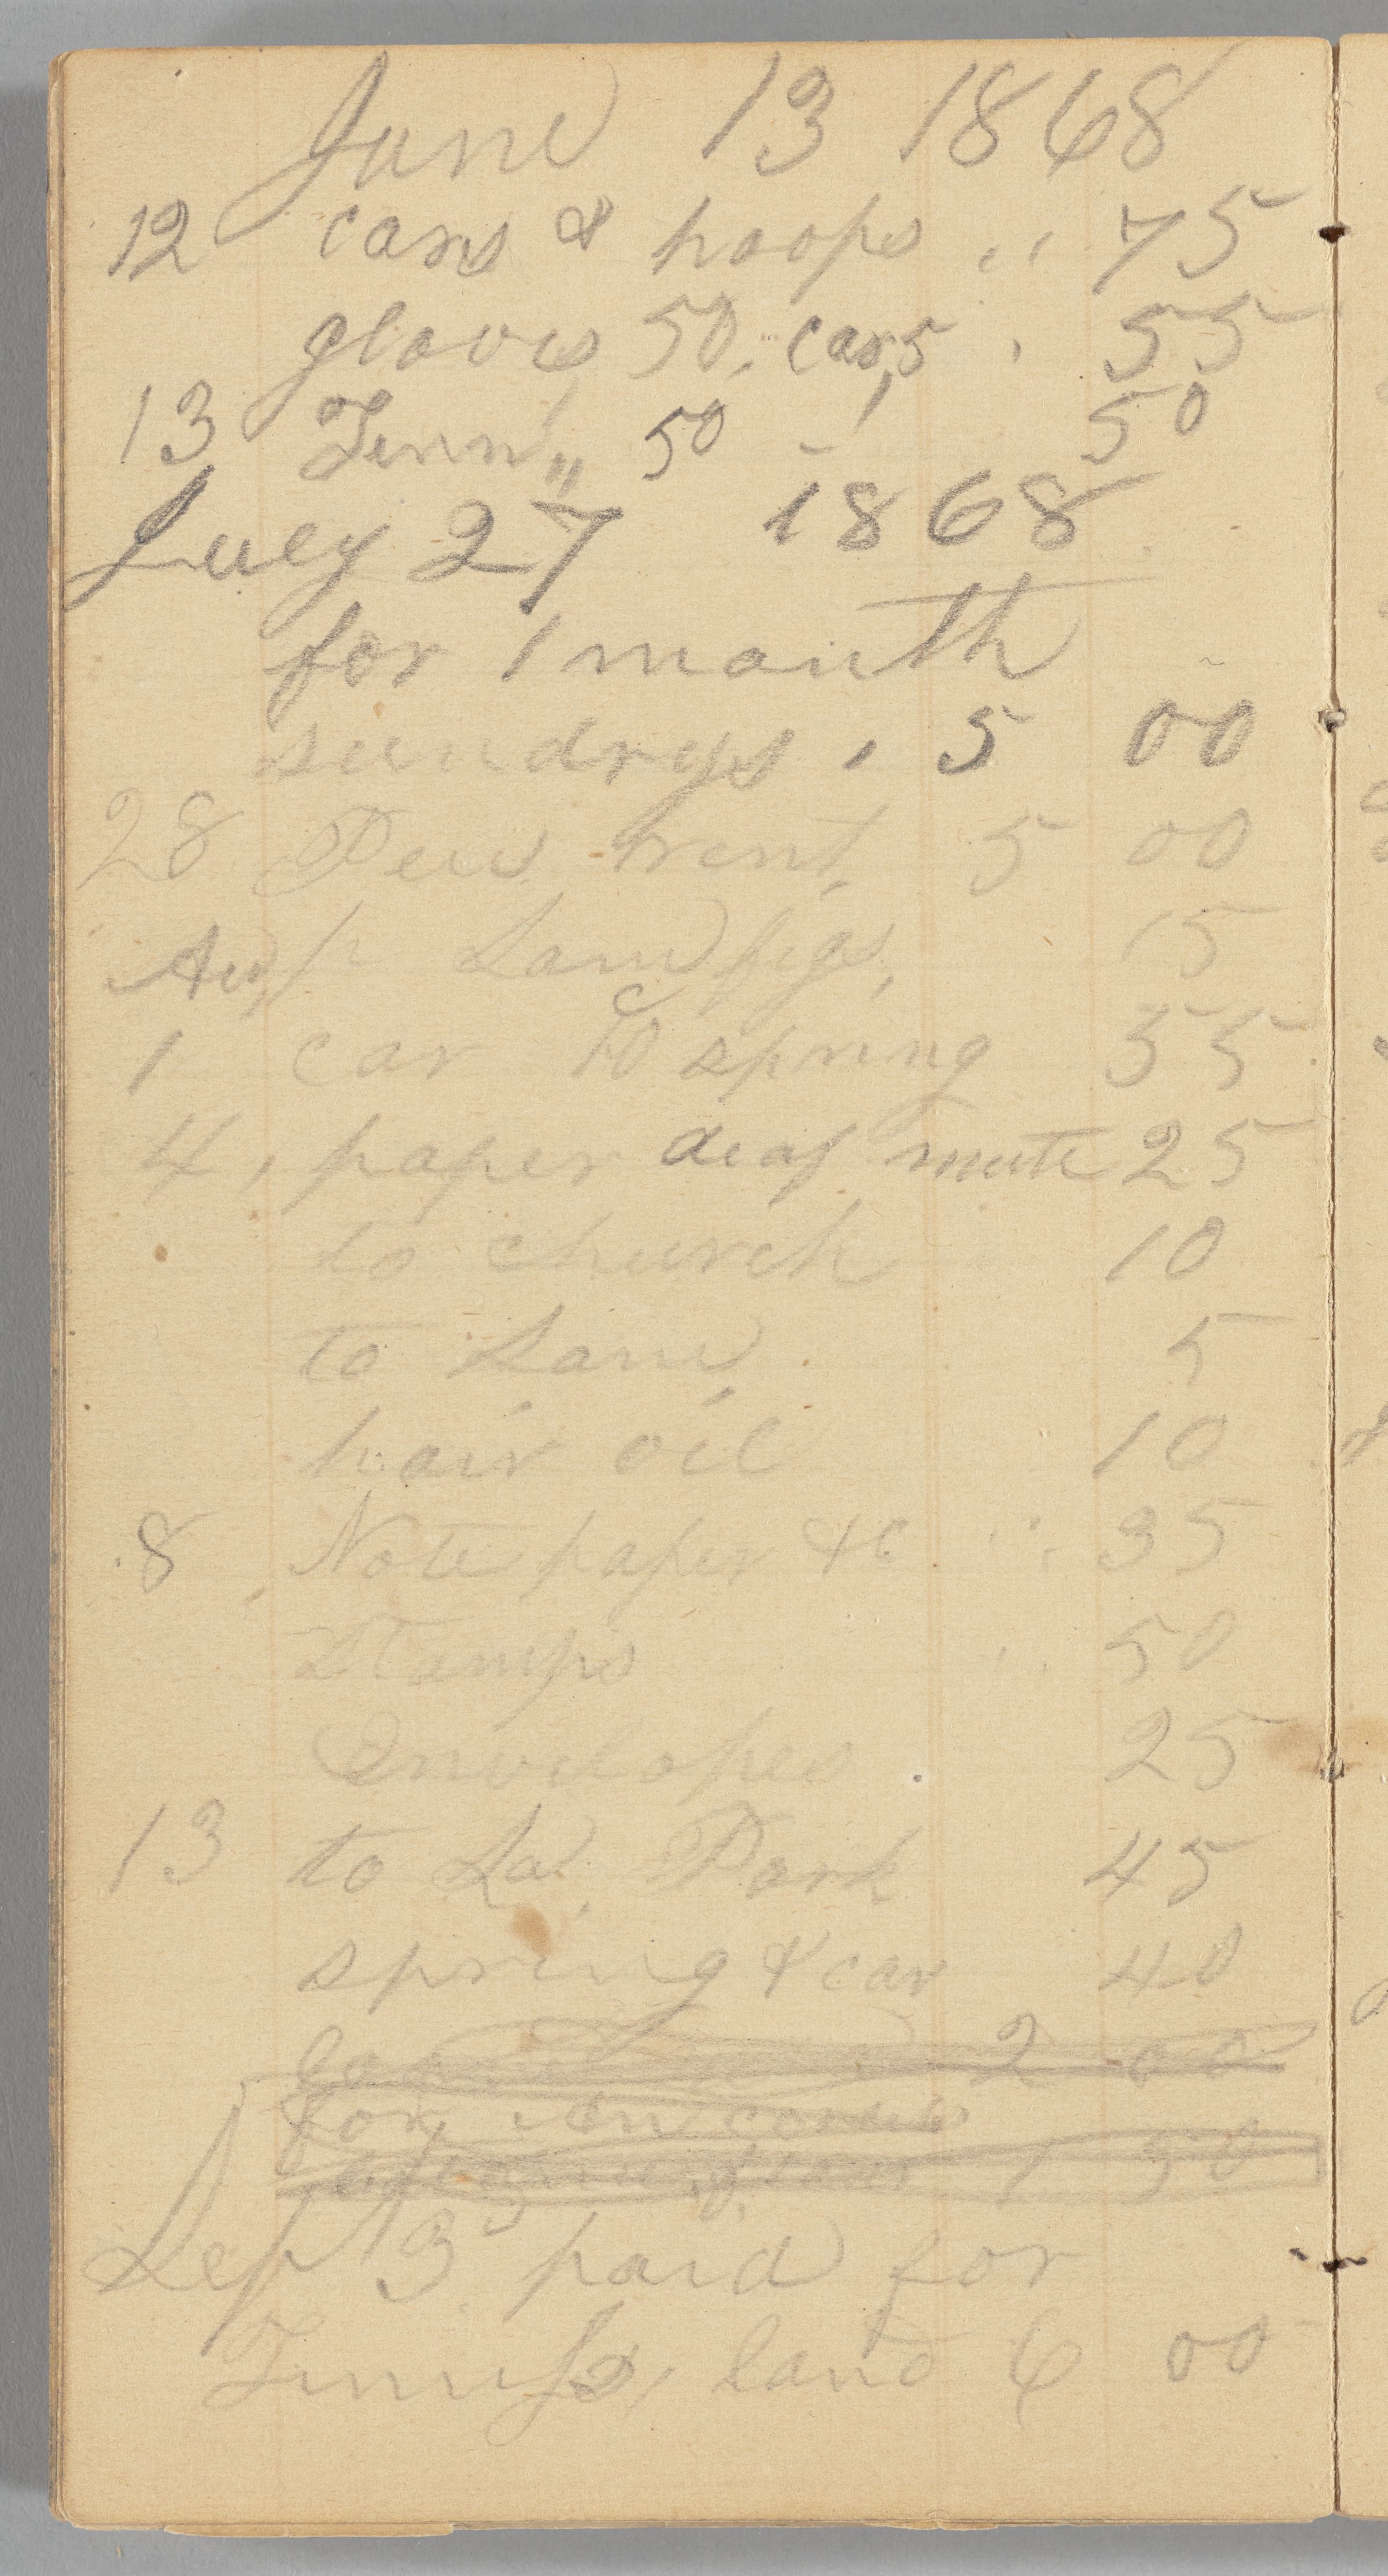 June 13 1868
12 cars & hoops 75
gloves 50, car,5 55
13 Tenn,, 50 50
July 27 1868
for 1 month
sundrys 5 00
28 Pew rent, 5 00
Au, figs, 15
1 car to spring 55
4, paper deaf mute 25
to church 10
to
5
hair oil 10
8 Note paper &c 35
stamps 50
Envelopes 25
13 to La, Park 45
spring & car 40
2 00
for
1 50
Sep 13 paid for
land 6 00